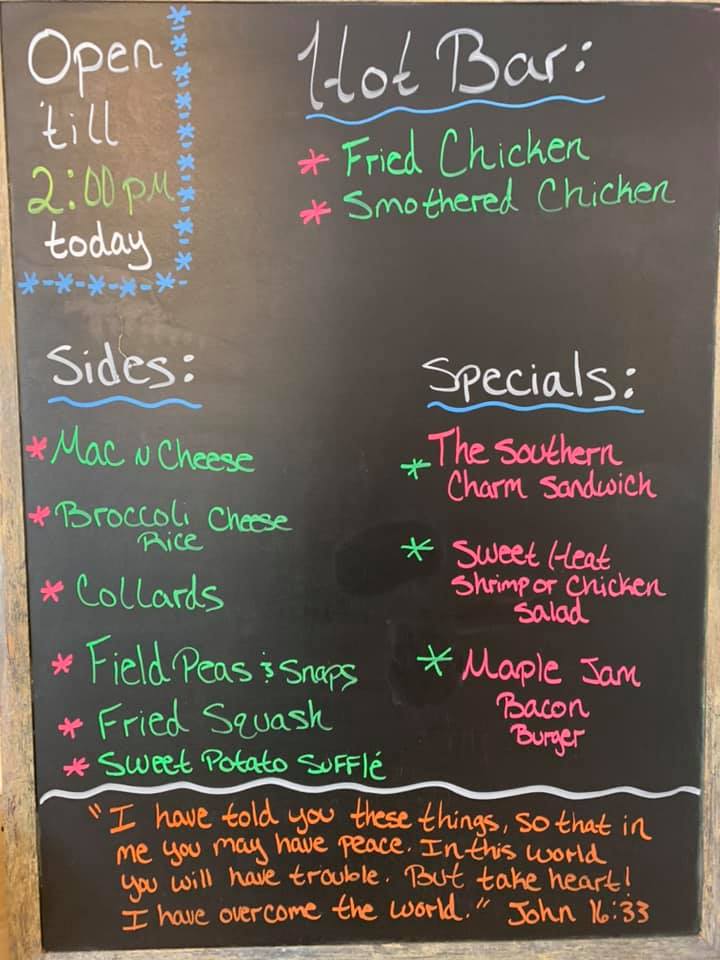 Open
'till
2:00pm
today
Hot Bar:
* Fried Chicken
* Smothered Chicken
Sides:
* Mac N Cheese
* Broccoli Cheese
Rice
* Collards
* Field Peas & Snaps
* Fried Squash
* Sweet Potato Sufflé
Specials:
* The Southern
Charm Sandwich
* Sweet Heat
Shrimp or Chicken
Salad
* Maple Jam
Bacon
Burger
"I have told you these things, so that in
me you may have peace. In this world
you will have trouble. But take heart!
I have overcome the world." John 16:33